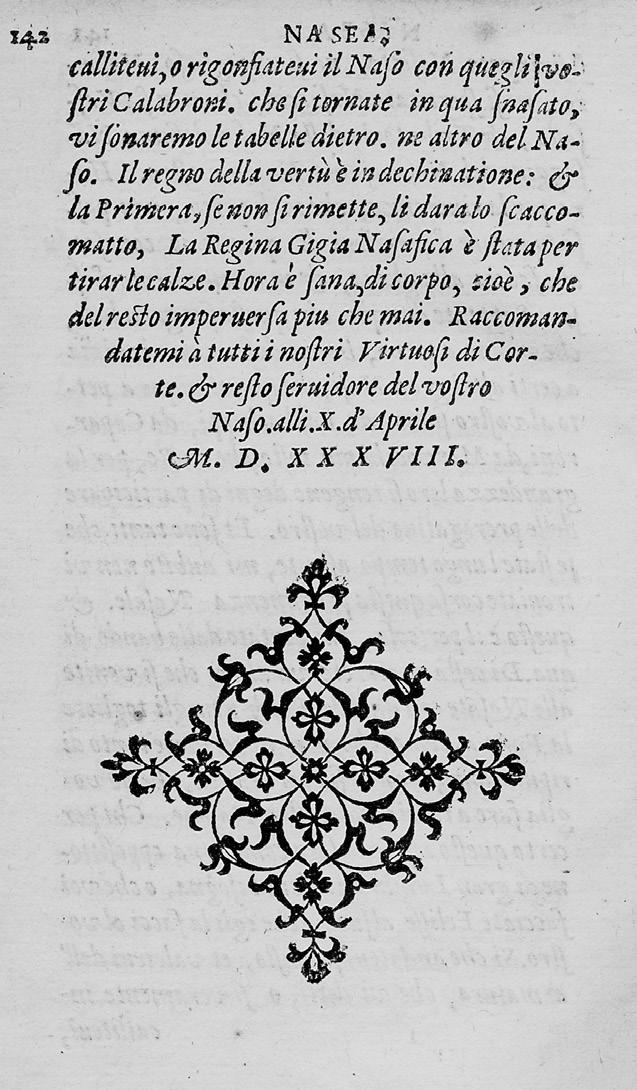 142 NASEA;
calliteui, o rigonfiateui il Naſo con quegli vo-
ſtri Calabroni. che ſi tornate in qua ſnaſato,
vi ſonaremo le tabelle dietro. ne altro del Na-
ſo. Il regno della vertù è in dechinatione: &
la Primera, ſe non ſi rimette, li dara lo ſcacco-
matto, La Regina Gigia Naſafica è ſtata per
tirar le calze. Hora è ſana, di corpo, cioè, che
del reſto imperuerſa piu che mai. Raccoman-
datemi à tutti i noſtri Virtuoſi di Cor-
te. & reſto ſeruidore del voſtro
Naſo. alli. X. d'Aprile
M. D. XXXVIII.